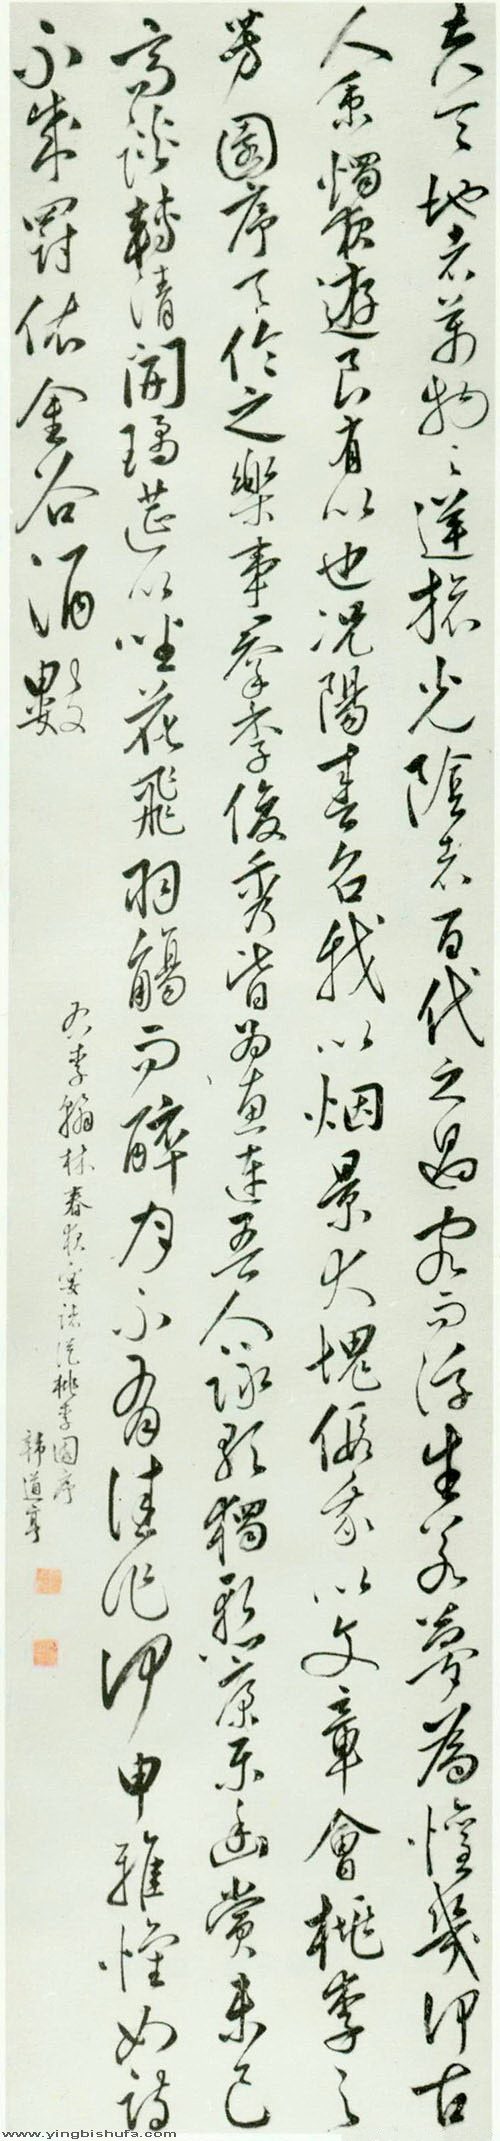 夫天地者萬物之逆旅光陰者百代之過客而浮生若夢為懽幾何古
人秉燭夜遊良有以也况陽春召我以烟景大塊假我以文章會桃李之
芳園序天倫之樂事羣季俊秀皆為惠連吾人詠歌獨慙康樂幽賞未已
高談轉清開瓊筵以坐花飛羽觴而醉月不有佳作何申雅懷如詩
不成罰依金谷酒數
右李翰林春夜宴諸從桃李園序
韩道亨
www.yingbishufa.com